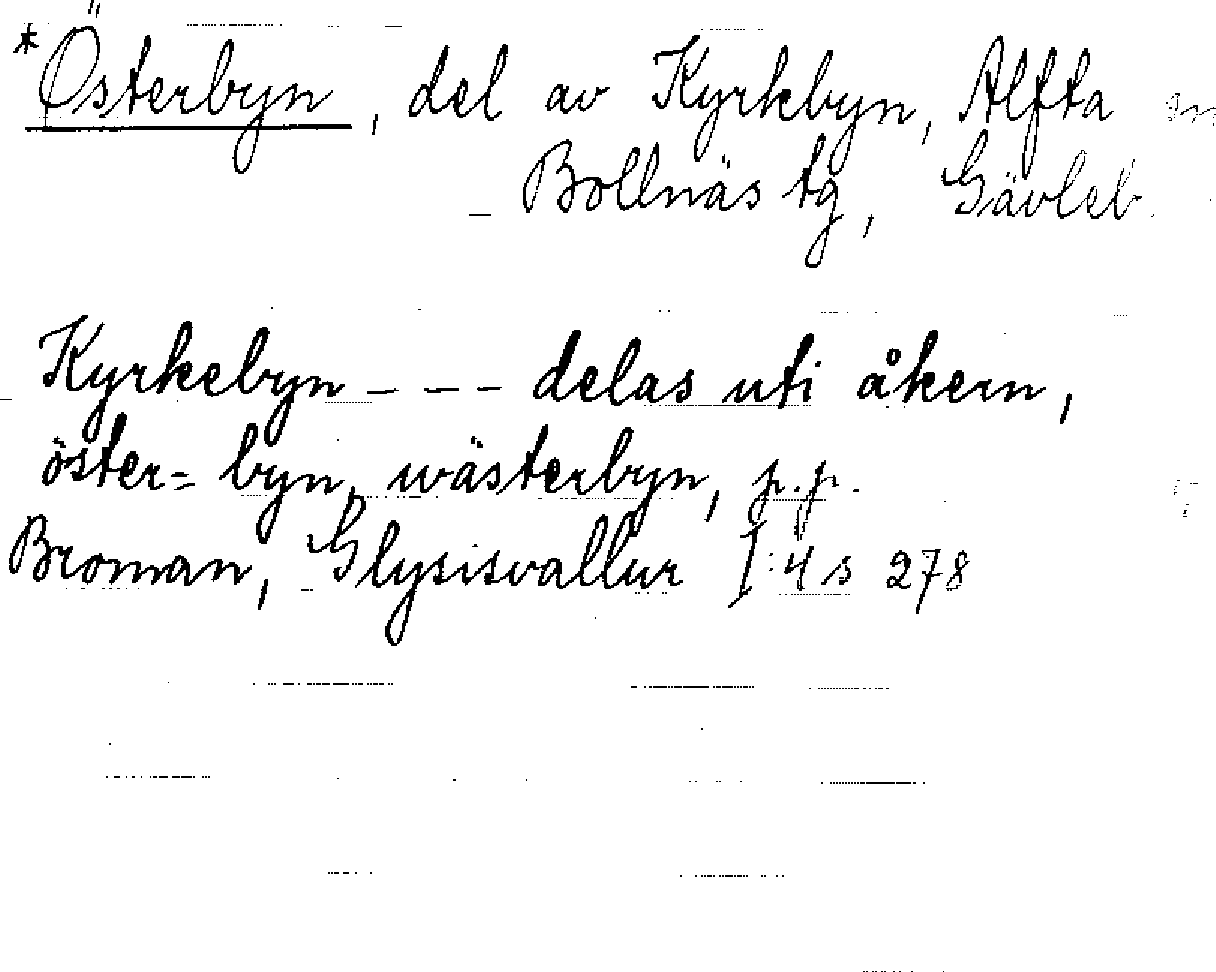 *Österbyn, del av Kyrkbyn, Alfta
Bollnäs tg, Gävleb.
Kyrkebyn - - - delas uti åkern,
öster= byn, wästerbyn, p.p.
Broman, Glysisvallur I:4 s 278